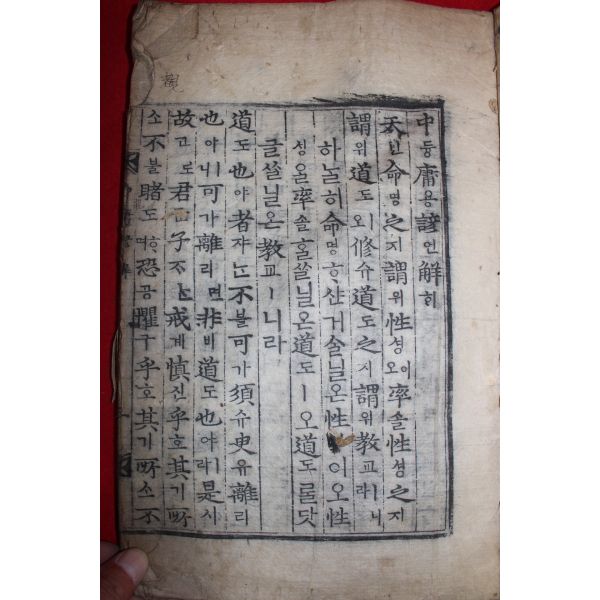 中듕庸용諺언解ᄒᆡ
天텬命명之지謂위性셩이오率솔性셩之지
謂위道도ㅣ오修슈道도之지謂위敎교ㅣ니라
하ᄂᆞᆯ히命명ᄒᆞ샨거ᄉᆞᆯ닐온性이오性
셩올率솔홀쓸닐온道도ㅣ오道도ᄅᆞᆯ닷
글쓸닐온敎교ㅣ니라
道도也야者쟈ᄂᆞᆫ不블可가須슈臾유離리
也야ㅣ니可가離리면非비道도也야ㅣ라是시
故고로君군子ᄌᆞᄂᆞᆫ戒계愼신乎호其기所
소不블睹도ᄒᆞ며恐공懼구乎호其기所소不